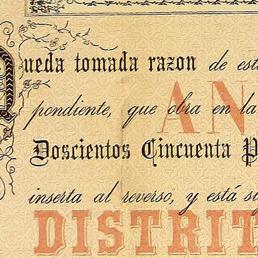 Queda tomada razon de est
pondiente, que obra en la
AN
Doscientos Cincuenta P
inserta al reverso, y está su
DISTRIT